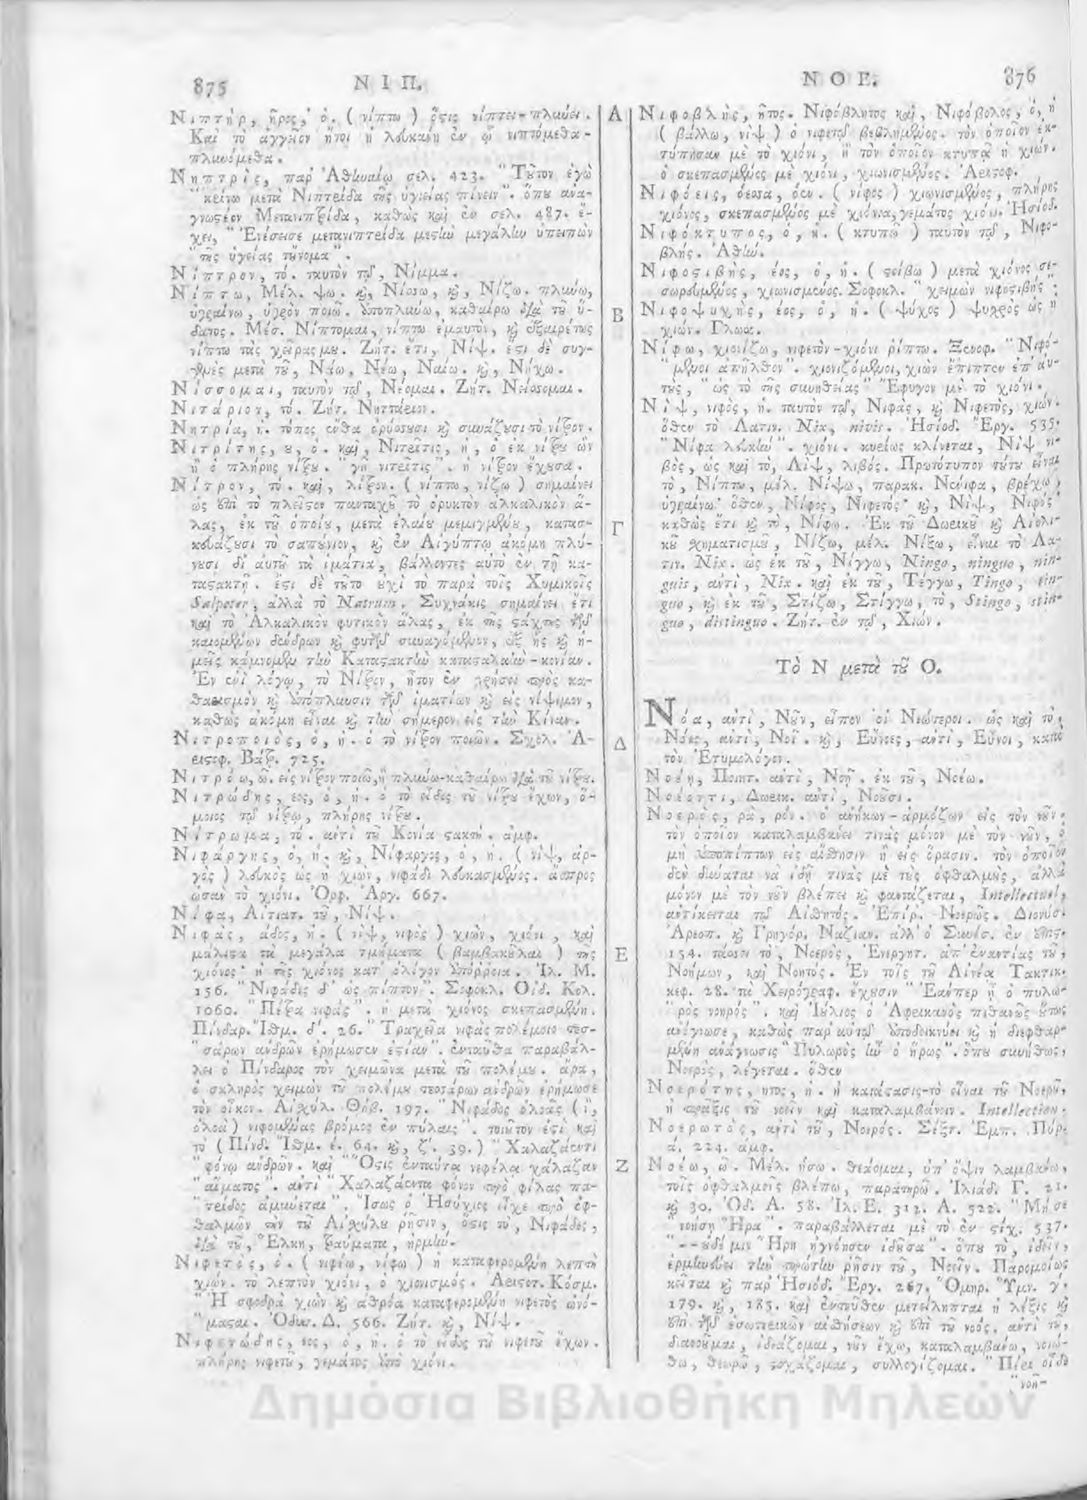 875 Ν Ι Π.
Νιπτὴρ, ῆρος, ὁ. (νίπτω) ὅςις νίπτει-πλιώει.
Καὶ τὸ ἀγγεῖον ἤτοι ἡ λουκάνη ἐν ᾧ νιπτόμεθα-
πλυνόμεθα.
Νηπτρὶς, παρ' Ἀθλωαίῳ σελ. 423. "Τοῦτον ἐγὼ
"κείνῳ μετὰ Νιπτρίδα τῆς ὑγείας πίνειν". ὅπου ἀνα-
γνωςέον Μετανιπτρίδα, καθὼς καὶ ἐν σελ. 487. ἔ-
χει, "Ἐνέσεισε μετανιπτρίδα μεςὴν μεγάλην ὑπειπὼν
"τῆς ὑγείας τοὔνομα".
Νίπτρον, τό. ταυτὸν τῷ, Νίμμα.
Νίπτω, Μέλ. ψω. καὶ, Νίσσω, καὶ, Νίζω. πλύνω,
ὑγραίνω, ὑγρὸν ποιῶ. ὑποπλύνω, καθαίρω διὰ τοῦ ὕ-
δατος. Μέσ. Νίπτομαι, νίπτω ἐμαυτὸν, καὶ ἐξαιρέτως
νίπτω τὰς χεῖράς μου. Ζήτ. ἔτι, Νίψ. ἔςι δὲ συγ-
γενὲς μετὰ τοῦ, Νάω, Νέω, Ναίω. καὶ, Νήχω.
Νίσσομαι, ταυτὸν τῷ, Νέομαι. Ζήτ. Νείσσομαι.
Νιτάριον, τό. Ζήτ. Νηττάριον.
Νητρία, ἡ. τόπος ἔνθα ὀρύσσουσι καὶ συνάζουσι τὸ νίτρον.
Νιτρίτης, ου, ὁ. καὶ, Νιτρῖτις, ἡ, ὁ ἐκ νίτρου ὢν
ἢ ὁ πλήρης νίτρου. "γῆ νιτρῖτις". ἡ νίτρον ἔχουσα.
Νίτρον, τό. καὶ, λίτρον. (νίπτω, νίζω) σημαίνει
ὡς ἐπὶ τὸ πλεῖςον πανταχοῦ τὸ ὀρυκτὸν ἀλκαλικὸν ἅ-
λας, ἐκ τοῦ ὁποίου, μετὰ ἐλαίου μεμιγμένου, κατασ-
κευάζουσι τὸ σαπούνιον, καὶ ἐν Αἰγύπτῳ ἀκόμη πλύ-
νουσι δι' αὐτοῦ τὰ ἱμάτια, βάλλοντες αὐτὸ ἐν τῇ κα-
ταςακτῇ. ἔςι δὲ τοῦτο οὐχὶ τὸ παρὰ τοῖς Χυμικοῖς
Salpeter, ἀλλὰ τὸ Natrum. Συχνάκις σημαίνει ἔτι
καὶ τὸ Ἀλκαλικὸν φυτικὸν ἅλας, ἐκ τῆς ςάχτης τῶν
καιομένων δένδρων καὶ φυτῶν συναγόμενον, ἐξ ἧς καὶ ἡ-
μεῖς κάμνομεν τὴν Καταςακτὴν καταςαλακτὴν-κονίαν.
Ἐν ἑνὶ λόγῳ, τὸ Νίτρον, ἦτον ἐν χρήσει πρὸς κα-
θαρισμὸν καὶ ἀπόπλυσιν τῶν ἱματίων καὶ εἰς νίψιμον,
καθὼς ἀκόμη εἶναι καὶ τὴν σήμερον εἰς τὴν Κίναν.
Νιτροποιὸς, ὁ, ἡ. ὁ τὸ νίτρον ποιῶν. Σχόλ. Ἀ-
ριςοφ. Βάτρ. 725.
Νιτρόω, ῶ. εἰς νίτρον ποιῶ, ἢ πλύνω-καθαίρω διὰ τοῦ νίτρου.
Νιτρώδης, εος, ὁ, ἡ. ὁ τὸ εἶδος τοῦ νίτρου ἔχων, ὅ-
μοιος τῷ νίτρῳ, πλήρης νίτρου.
Νίτρωμα, τό. ἀντὶ τοῦ Κονία ςακτή. ἀμφ.
Νιφάργης, ὁ, ἡ. καὶ, Νίφαργος, ὁ, ἡ. (νίψ, ἀρ-
γὸς) λευκὸς ὡς ἡ χιὼν, νιφάδι λευκασμένος. ἄσπρος
ὡσὰν τὸ χιόνι. Ὀρφ. Ἀργ. 667.
Νίφα, Αἰτιατ. τοῦ, Νίψ.
Νιφὰς, άδος, ἡ. (νίψ, νιφὸς) χιὼν, χιόνι, καὶ
μάλιςα τὰ μεγάλα τμήματα (βαμβακοῦλαι) τῆς
χιόνος· ἢ τῆς χιόνος κατ' ὀλίγον ἀπόρροια. Ἰλ. Μ.
156. "Νιφάδες δ' ὡς πίπτον". Σοφοκλ. Οἰδ. Κολ.
1060. "Πέτρα νιφάς". ἡ μετὰ χιόνος σκεπασμένη.
Πίνδαρ. Ἰσθμ. δ'. 26. "Τραχεῖα νιφὰς πολέμοιο τεσ-
"σάρων ἀνδρῶν ἐρήμωσεν ἑςίαν". ἐνταῦθα παραβάλ-
λει ὁ Πίνδαρος τὸν χειμῶνα μετὰ τοῦ πολέμου. ἄρα,
ὁ σκληρὸς χειμὼν τοῦ πολέμου τεσσάρων ἀνδρῶν ἐρήμωσε
τὸν οἶκον. Αἰσχύλ. Θήβ. 197. "Νιφάδος ὀλοᾶς (ἢ,
ὀλοὰ) νιφομένας βρόμος ἐν πύλαις". τοιοῦτον ἔςι καὶ
τὸ (Πίνδ. Ἰσθμ. έ. 64. καὶ, ζ'. 39.) "Χαλαζάεντι
"φόνῳ ἀνδρῶν. καὶ "Ὅςις ἐνταύτᾳ νεφέλᾳ χάλαζαν
"αἵματος". ἀντὶ "Χαλαζάεντα φόνον πρὸ φίλας πα-
"τρίδος ἀμύνεται". Ἴσως ὁ Ἡσύχιος εἶχε πρὸ ὀφ-
θαλμῶν τὴν τοῦ Αἰσχύλου ῥῆσιν, ὅςις τὸ, Νιφάδες,
διὰ τοῦ, Ἕλκη, τραύματα, ἡρμήν.
Νιφετὸς, ὁ. (νιφέω, νίφω) ἡ καταφερομένη λεπτὴ
χιών. τὸ λεπτὸν χιόνι, ὁ χιονισμός. Ἀριςοτ. Κόσμ.
"Ἡ σφοδρὰ χιὼν καὶ ἀθρόα καταφερομένη νιφετὸς ὠνό-
"μαςαι. Ὀδυσ. Δ. 566. Ζήτ. καὶ, Νίψ.
Νιφετώδης, εος, ὁ, ἡ. ὁ τὸ εἶδος τοῦ νιφετοῦ ἔχων.
πλήρης νιφετοῦ, γεμάτος ἀπὸ χιόνι.
Α
Β
Γ
Δ
Ε
Ζ
Ν Ο Ε. 876
Νιφοβλὴς, ῆτος. Νιφόβλητος καὶ, Νιφόβολος, ὁ, ἡ
(βάλλω, νὶψ) ὁ νιφετῷ βεβλημένος. τὸν ὁποῖον ἐκ-
τύπησαν μὲ τὸ χιόνι, ἢ τὸν ὁποῖον κτυπᾷ ἡ χιών.
ὁ σκεπασμένος μὲ χιόνι, χιωνισμένος. Ἀριςοφ.
Νιφόεις, όεσσα, όεν. (νίφος) χιωνισμένος, πλήρης
χιόνος, σκεπασμένος μὲ χιόνια, γεμάτος χιόνι. Ἡσίοδ.
Νιφόκτυπος, ὁ, ἡ. (κτυπῶ) ταυτὸν τῷ, Νιφο-
βλής. Ἀθήν.
Νιφοςιβὴς, έος, ὁ, ἡ. (ςείβω) μετὰ χιόνος σε-
σωρευμένος, χιωνισμένος. Σοφοκλ. "χειμὼν νιφοςιβὴς".
Νιφοψυχὴς, έος, ὁ, ἡ. (ψύχος) ψυχρὸς ὡς ἡ
χιών. Γλωσ.
Νίφω, χιονίζω, νιφετὸν-χιόνι ῥίπτω. Ξενοφ. "Νιφό-
"μενοι ἀπῆλθον". χιονιζόμενοι, χιὼν ἔπιπτεν ἐπ' αὐ-
τοὺς, "ὡς τὸ τῆς συνηθείας" Ἔφυγον μὲ τὸ χιόνι.
Νὶψ, νιφὸς, ἡ. ταυτὸν τῷ, Νιφὰς, καὶ Νιφετὸς, χιών.
ὅθεν τὸ Λατιν. Nix, nivis. Ἡσίοδ. Ἔργ. 535.
"Νίφα λευκὴν". χιόνι. κυρίως κλίνεται, Νὶψ νι-
βὸς, ὡς καὶ τὸ, Λὶψ, λιβός. Πρωτότυπον τούτου εἶναι
τὸ, Νίπτω, μέλ. Νίψω, παρακ. Νένιφα, βρέχω,
ὑγραίνω· ὅθεν, Νίφος, Νιφετὸς· καὶ, Νὶψ, Νιφός·
καθὼς ἔτι καὶ τὸ, Νίφω. Ἐκ τοῦ Δωρικοῦ καὶ Αἰολι-
κοῦ σχηματισμοῦ, Νίζω, μέλ. Νίξω, εἶναι τὸ Λα-
τιν. Nix. ὡς ἐκ τοῦ, Νίγγω, Ningo, ninguo, nin-
guis, ἀντὶ, Nix. καὶ ἐκ τοῦ, Τέγγω, Tingo, tin-
guo, καὶ ἐκ τοῦ, Στίζω, Στίγγω, τὸ, Stingo, stin-
guo, distinguo. Ζήτ. ἐν τῷ, Χιών.
Τὸ Ν μετὰ τοῦ Ο.
Νόα, ἀντὶ, Νοῦν, εἶπον οἱ Νεώτεροι. ὡς καὶ τὸ,
Νόες, ἀντὶ, Νοῖ. καὶ, Εὔνοες, ἀντὶ, Εὖνοι, κατὰ
τὸν Ἐτυμολόγον.
Νοέῃ, Ποιητ. ἀντὶ, Νοῇ. ἐκ τοῦ, Νοέω.
Νοέοντι, Δωρικ. ἀντὶ, Νοοῦσι.
Νοερὸς, ρὰ, ρόν. ὁ ἀνήκων-ἁρμόζων εἰς τὸν νοῦν.
τὸν ὁποῖον καταλαμβάνει τινὰς μόνον μὲ τὸν νοῦν, ὁ
μὴ ὑποπίπτων εἰς αἴσθησιν ἢ εἰς ὅρασιν. τὸν ὁποῖον
δὲν δύναται νὰ ἰδῇ τινὰς μὲ τοὺς ὀφθαλμοὺς, ἀλλὰ
μόνον μὲ τὸν νοῦν βλέπει καὶ φαντάζεται, Intellectuel,
ἀντίκειται τῷ Αἰσθητός. Ἐπίρ. Νοερῶς. Διονύσ.
Ἀρεοπ. καὶ Γρηγόρ. Ναζιαν. ἀλλ' ὁ Συνέσ. ἐν ἐπις.
154. τάσσει τὸ, Νοερὸς, Ἐνεργητ. ἀπ' ἐναντίας τοῦ,
Νοήμων, καὶ Νοητός. Ἐν τοῖς τοῦ Αἰνέα Τακτικ.
κεφ. 28. τὰ Χειρόγραφ. ἔχουσιν "Ἐάνπερ ᾖ ὁ πυλω-
ρὸς νοηρὸς". καὶ Ἰούλιος ὁ Ἀφρικανὸς πιθανῶς οὕτως
ἀνέγνωσε, καθὼς παρ' αὐτῷ ὑποδεικνύει καὶ ἡ διεφθαρ-
μένη ἀνάγνωσις "Πυλωρὸς ἦν ὁ ἥρως". ὅπου συνήθως,
Νοερὸς, λέγεται. ὅθεν
Νοερότης, ητος, ἡ. ἡ κατάςασις-τὸ εἶναι τοῦ Νοεροῦ,
ἡ πρᾶξις τοῦ νοεῖν καὶ καταλαμβάνειν. Intellection.
Νοερωτὸς, ἀντὶ τοῦ, Νοερός. Σέξτ. Ἐμπ. Πύρ.
ά. 224. ἀμφ.
Νοέω, ῶ. Μέλ. ήσω. θεάομαι, ὑπ' ὄψιν λαμβάνω,
τοῖς ὀφθαλμοῖς βλέπω, παρατηρῶ. Ἰλιάδ. Γ. 21.
καὶ 30. Ὀδ. Λ. 58. Ἰλ. Ε. 312. Λ. 522. "Μή σε
"νοήσῃ Ἥρα". παραβάλλεται μὲ τὸ ἐν ςίχ. 537.
"--οὐδέ μιν Ἥρη ἠγνόησεν ἰδοῦσα". ὅπου τὸ, ἰδεῖν,
ἑρμηνεύει τὴν πρώτην ῥῆσιν τοῦ, Νοεῖν. Παρομοίως
κεῖται καὶ παρ' Ἡσιόδ. Ἔργ. 267. Ὁμηρ. Ὕμν. γ'.
179. καὶ, 183. καὶ ἐντεῦθεν μετείληπται ἡ λέξις καὶ
ἐπὶ τῶν ἐσωτερικῶν αἰσθήσεων καὶ ἐπὶ τοῦ νοός, ἀντὶ τοῦ,
διανοοῦμαι, ἰδεάζομαι, νοῦν ἔχω, καταλαμβάνω, νοιώ-
θω, θεωρῶ, ςοχάζομαι, συλλογίζομαι. "Περὶ οἶδε
"νοῆ-
Δημόσια Βιβλιοθήκη Μηλεών